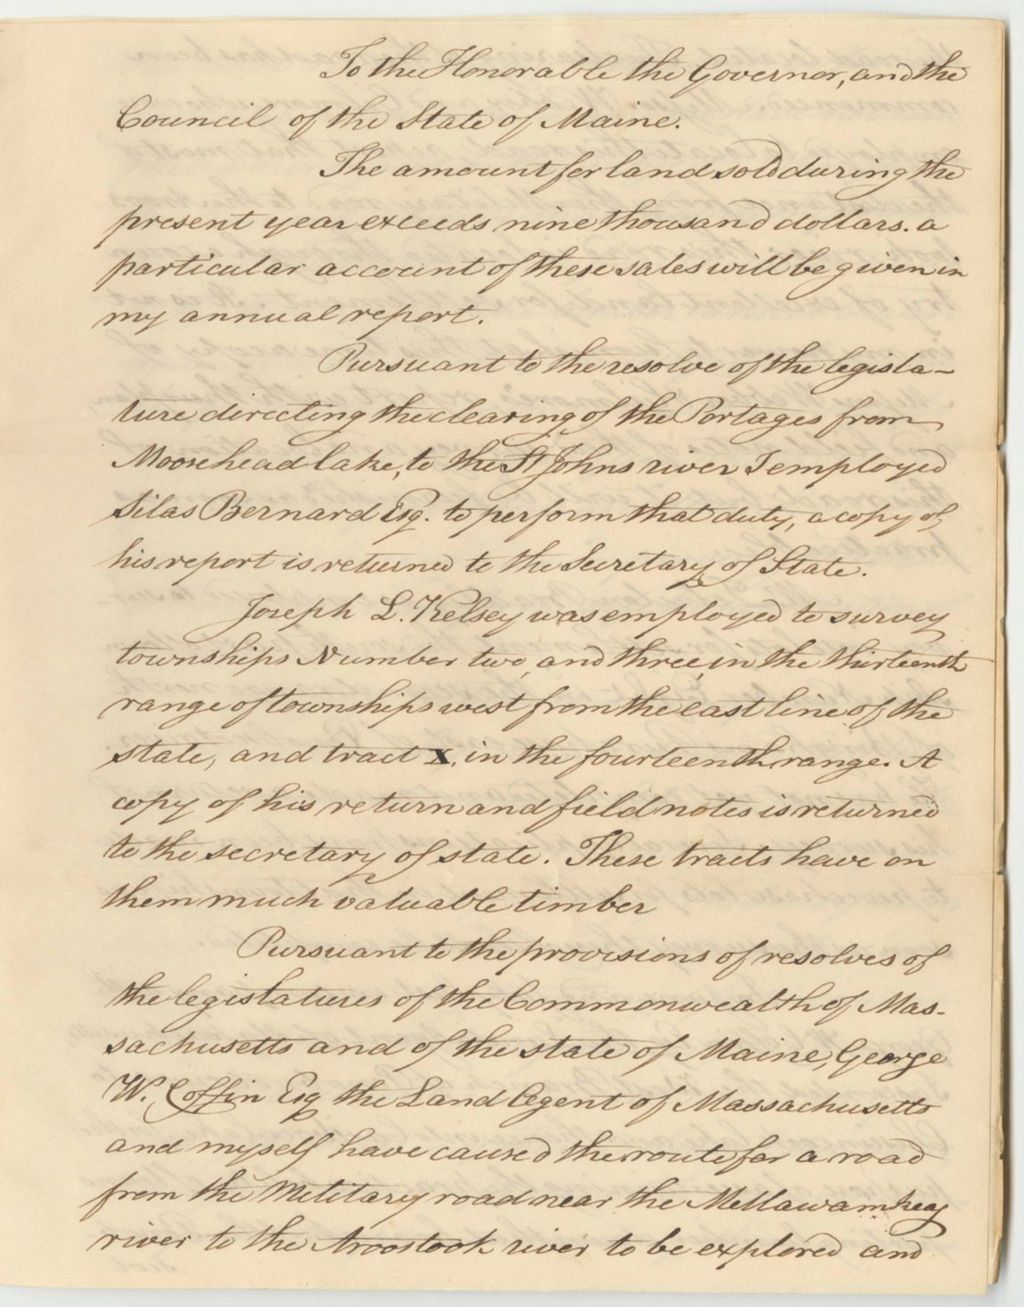 To the Honorable the Governor, and the
Council of the State of Maine.
The amount for land sold during the
present year exceeds nine thousand dollars. a
particular account of these sales will be given in
my annual report.
Pursuant to the resolve of the legisla-
ture directing the clearing of the Portages from
Moosehead lake, to the St Johns river I employed
Silas Bernard Esq. to perform that duty, a copy of
his report is returned to the Secretary of State.
Joseph L. Kelsey was employed to survey
townships Number two, and three, in the thirteenth
range of townships west from the east line of the
state, and tract X, in the fourteenth range. A
copy of his return and field notes is returned
to the secretary of state. These tracts have on
them much valuable timber
Pursuant to the provisions of resolves of
the legislatures of the Commonwealth of Mas-
sachusetts and of the state of Maine, George
W. Coffin Esq the Land Agent of Massachusetts
and myself have caused the route for a road
from the Military road near the Mettawamkeag
river to the Aroostook river to be explored and